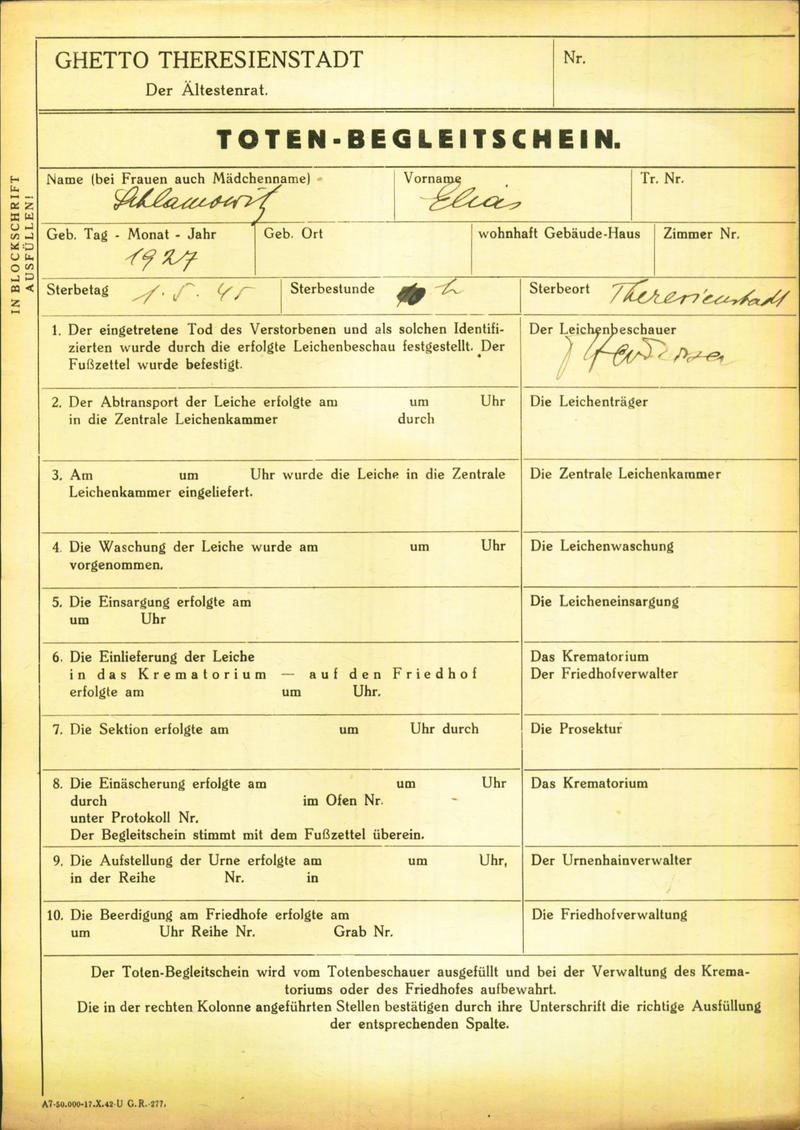 GHETTO THERESIENSTADT
Der Ältestenrat.
Nr.
TOTEN-BEGLEITSCHEIN.
IN BLOCKSCHRIFT
AUSFÜLLEN!
Name (bei Frauen auch Mädchenname)
Schlamowitz
Vorname
Elias
Tr. Nr.
Geb. Tag - Monat - Jahr
1927
Geb. Ort
wohnhaft Gebäude-Haus
Zimmer Nr.
Sterbetag 1.5.45
Sterbestunde h
Sterbeort Theresienstadt
1. Der eingetretene Tod des Verstorbenen und als solchen Identifi-
zierten wurde durch die erfolgte Leichenbeschau festgestellt. Der
Fußzettel wurde befestigt.
Der Leichenbeschauer
2. Der Abtransport der Leiche erfolgte am um Uhr
in die Zentrale Leichenkammer durch
Die Leichenträger
3. Am um Uhr wurde die Leiche in die Zentrale
Leichenkammer eingeliefert.
Die Zentrale Leichenkammer
4. Die Waschung der Leiche wurde am um Uhr
vorgenommen.
Die Leichenwaschung
5. Die Einsargung erfolgte am
um Uhr
Die Leicheneinsargung
6. Die Einlieferung der Leiche
in das Krematorium — auf den Friedhof
erfolgte am um Uhr.
Das Krematorium
Der Friedhofverwalter
7. Die Sektion erfolgte am um Uhr durch
Die Prosektur
8. Die Einäscherung erfolgte am um Uhr
durch im Ofen Nr.
unter Protokoll Nr.
Der Begleitschein stimmt mit dem Fußzettel überein.
Das Krematorium
9. Die Aufstellung der Urne erfolgte am um Uhr,
in der Reihe Nr. in
Der Urnenhainverwalter
10. Die Beerdigung am Friedhofe erfolgte am
um Uhr Reihe Nr. Grab Nr.
Die Friedhofverwaltung
Der Toten-Begleitschein wird vom Totenbeschauer ausgefüllt und bei der Verwaltung des Krema-
toriums oder des Friedhofes aufbewahrt.
Die in der rechten Kolonne angeführten Stellen bestätigen durch ihre Unterschrift die richtige Ausfüllung
der entsprechenden Spalte.
A7-50.000-17.X.42-U G.R.-277.